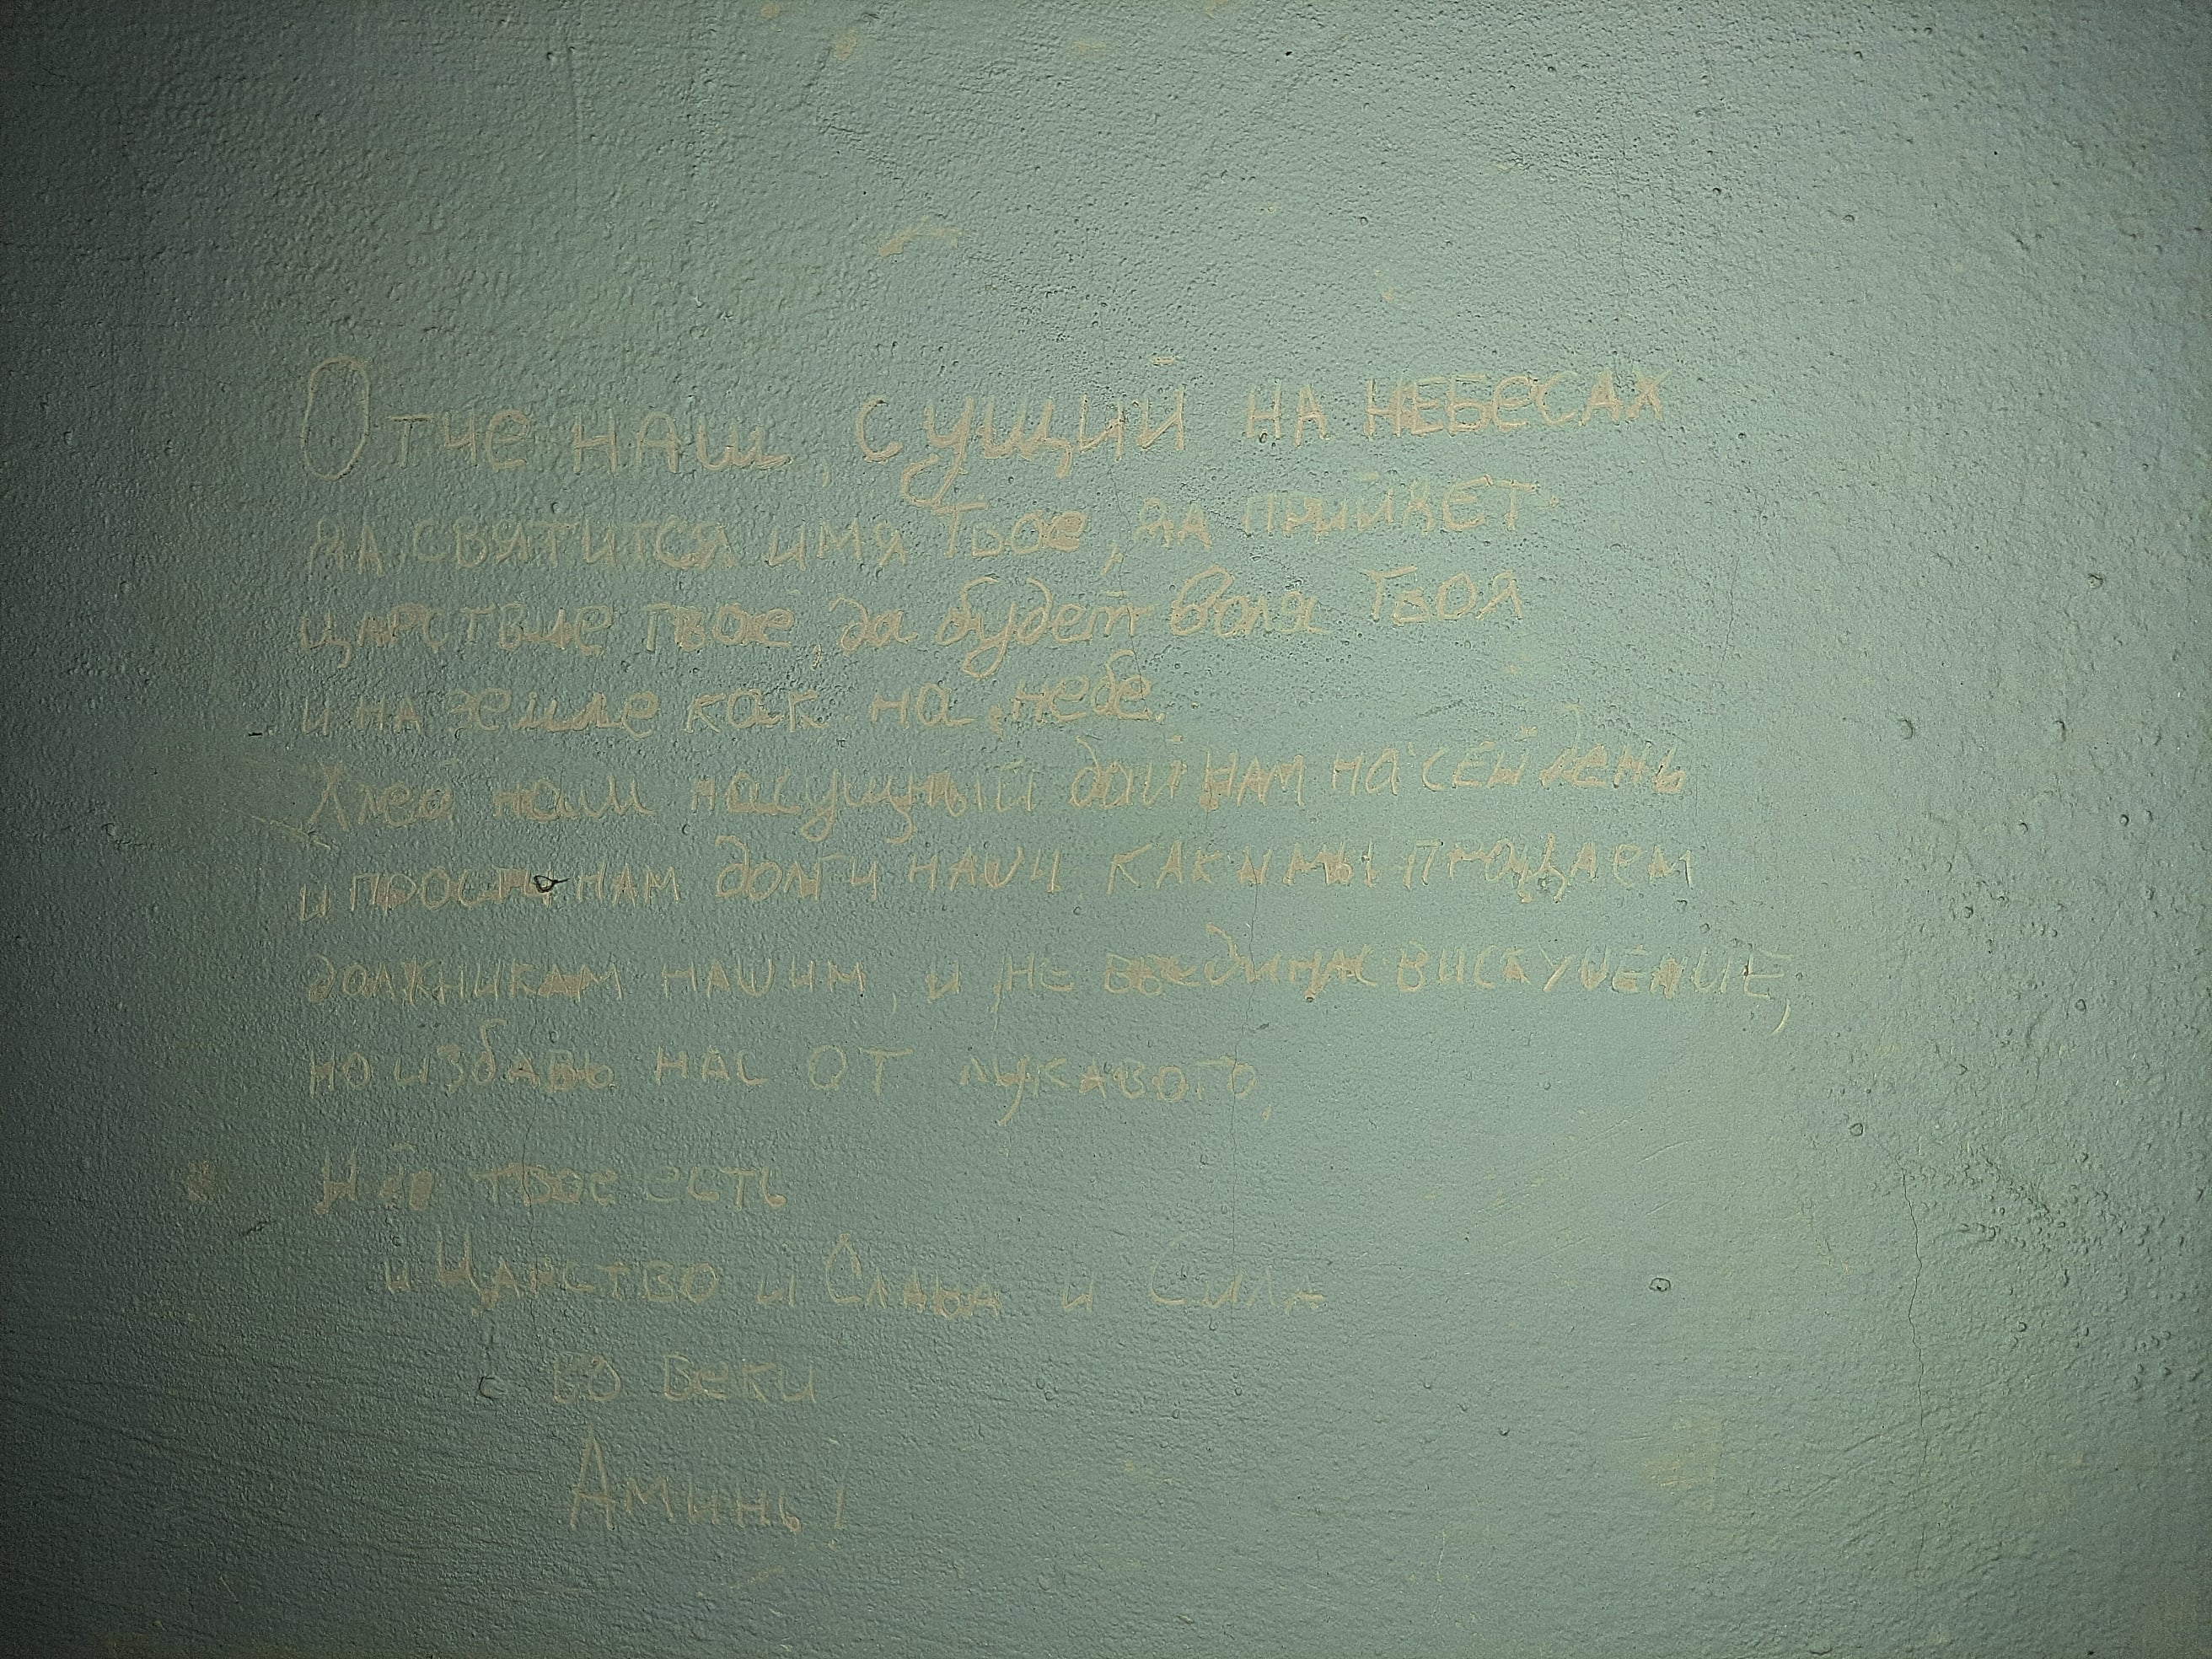 Отче наш, сущий на небесах
да святится имя Твое, да прийдет
царствие твое, да будет воля Твоя
и на земле как на небе.
Хлеб наш насущный дай нам на сей день
и прости нам долги наши как и мы прощаем
должникам нашим, и не введи нас в искушение,
но избавь нас от лукавого,
Ибо твое есть
и Царство и Слава и Сила
во веки
Аминь!